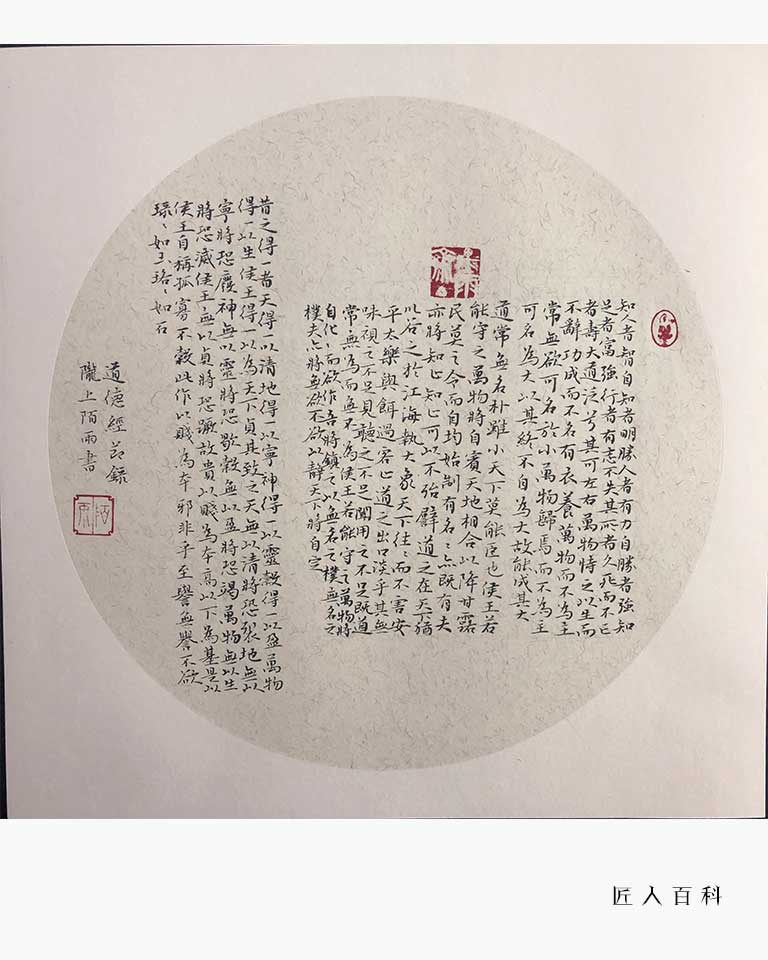 知人者智自知者明勝人者有力自勝者強知
足者富強行者有志不失其所者久死而不亡
者壽大道泛兮其可左右萬物恃之以生而
不辭功成而不名有衣養萬物而不為主
常無欲可名於小萬物歸焉而不為主
可名為大以其終不自為大故能成其大
道常無名朴雖小天下莫能臣也侯王若
能守之萬物將自賓天地相合以降甘露
民莫之令而自均始制有名〻亦既有夫
亦將知止知止可以不殆譬道之在天下猶
川谷之於江海執大象天下往〻而不害安
平太樂與餌過客止道之出口淡乎其無
味視之不足見聽之不足聞用之不足既道
常無為而無不為侯王若能守之萬物將
自化〻而欲作吾將鎮之以無名之樸無名之
樸夫亦將無欲不欲以靜天下將自定
昔之得一者天得一以清地得一以寧神得一以靈穀得一以盈萬物
得一以生侯王得一以為天下貞其致之天無以清將恐裂地無以
寧將恐廢神無以靈將恐歇穀無以盈將恐竭萬物無以生
將恐滅侯王無以貞將恐蹶故貴以賤為本高以下為基是以
侯王自稱孤寡不穀此作以賤為本邪非乎至譽無譽不欲
琭〻如玉珞〻如石
道德經節錄
隴上陌雨書
匠人百科